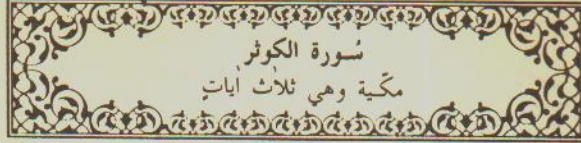 سُورة الكوثر
مكّية وهي ثلاث أياتٍ